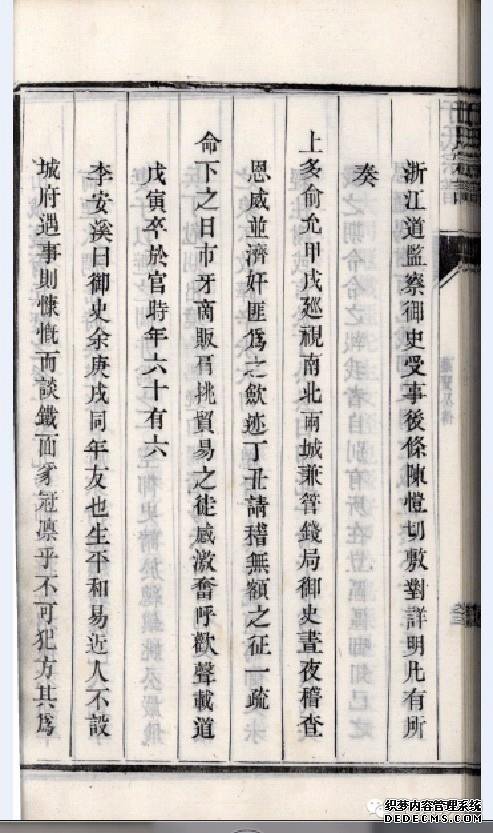 浙江道監察御史受事後條陳愷切敷對詳明凡有所
奏
上多俞允甲戌廵視南北兩城兼管錢局御史晝夜稽查
恩威並濟奸匪爲之歛迹丁丑請稽無額之征一疏
命下之日市牙商販肩挑貿易之徒感激奮呼歡聲載道
戊寅卒於官時年六十有六
李安溪曰御史余庚戌同年友也生平和易近人不設
城府遇事則慷慨而談鐵面豸冠凛乎不可犯方其爲
织梦内容管理系统
DEDECMS.COM